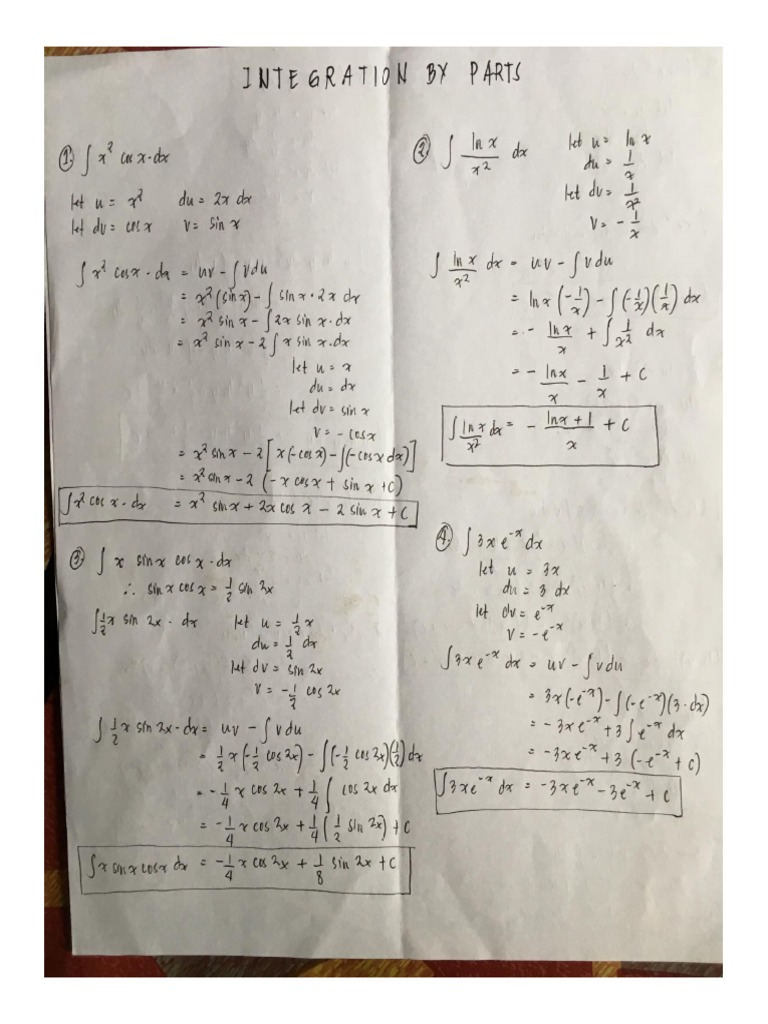 INTEGRATION BY PARTS
① ∫ x² cos x · dx
let u = x² du = 2x dx
let dv = cos x v = sin x
∫ x² cos x · dx = uv - ∫ v du
= x² (sin x) - ∫ sin x · 2x dx
= x² sin x - ∫ 2x sin x · dx
= x² sin x - 2 ∫ x sin x · dx
let u = x
du = dx
let dv = sin x
v = - cos x
= x² sin x - 2 [ x (-cos x) - ∫ (-cos x dx) ]
= x² sin x - 2 (-x cos x + sin x + C)
∫ x² cos x · dx = x² sin x + 2x cos x - 2 sin x + C
② ∫ ln x / x² dx
let u = ln x
du = 1/x
let dv = 1/x²
v = - 1/x
∫ ln x / x² dx = uv - ∫ v du
= ln x (-1/x) - ∫ (-1/x)(1/x) dx
= - ln x / x + ∫ 1/x² dx
= - ln x / x - 1/x + C
∫ ln x / x² dx = - ln x + 1 / x + C
③ ∫ x sin x cos x · dx
∴ sin x cos x = 1/2 sin 2x
∫ 1/2 x sin 2x · dx let u = 1/2 x
du = 1/2 dx
let dv = sin 2x
v = - 1/2 cos 2x
∫ 1/2 x sin 2x · dx = uv - ∫ v du
= 1/2 x (-1/2 cos 2x) - ∫ (-1/2 cos 2x)(1/2) dx
= - 1/4 x cos 2x + 1/4 ∫ cos 2x dx
= - 1/4 x cos 2x + 1/4 (1/2 sin 2x) + C
∫ x sin x cos x dx = - 1/4 x cos 2x + 1/8 sin 2x + C
④ ∫ 3x e⁻ˣ dx
let u = 3x
du = 3 dx
let dv = e⁻ˣ
v = -e⁻ˣ
∫ 3x e⁻ˣ dx = uv - ∫ v du
= 3x (-e⁻ˣ) - ∫ (-e⁻ˣ)(3 · dx)
= - 3x e⁻ˣ + 3 ∫ e⁻ˣ dx
= - 3x e⁻ˣ + 3 (-e⁻ˣ + C)
∫ 3x e⁻ˣ dx = - 3x e⁻ˣ - 3e⁻ˣ + C